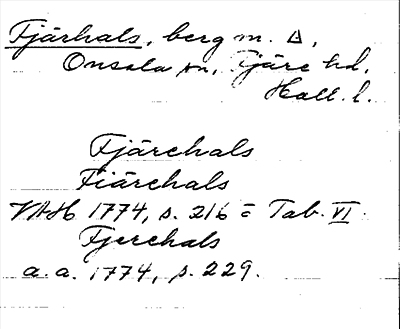 Fjärhals, berg m. Δ,
Onsala sn, Fjäre hd,
Hall. l.
Fjärehals
Fiärehals
VAH 1774, s. 216 = Tab. VI.
Fjerehals
a. a. 1774, s. 229.